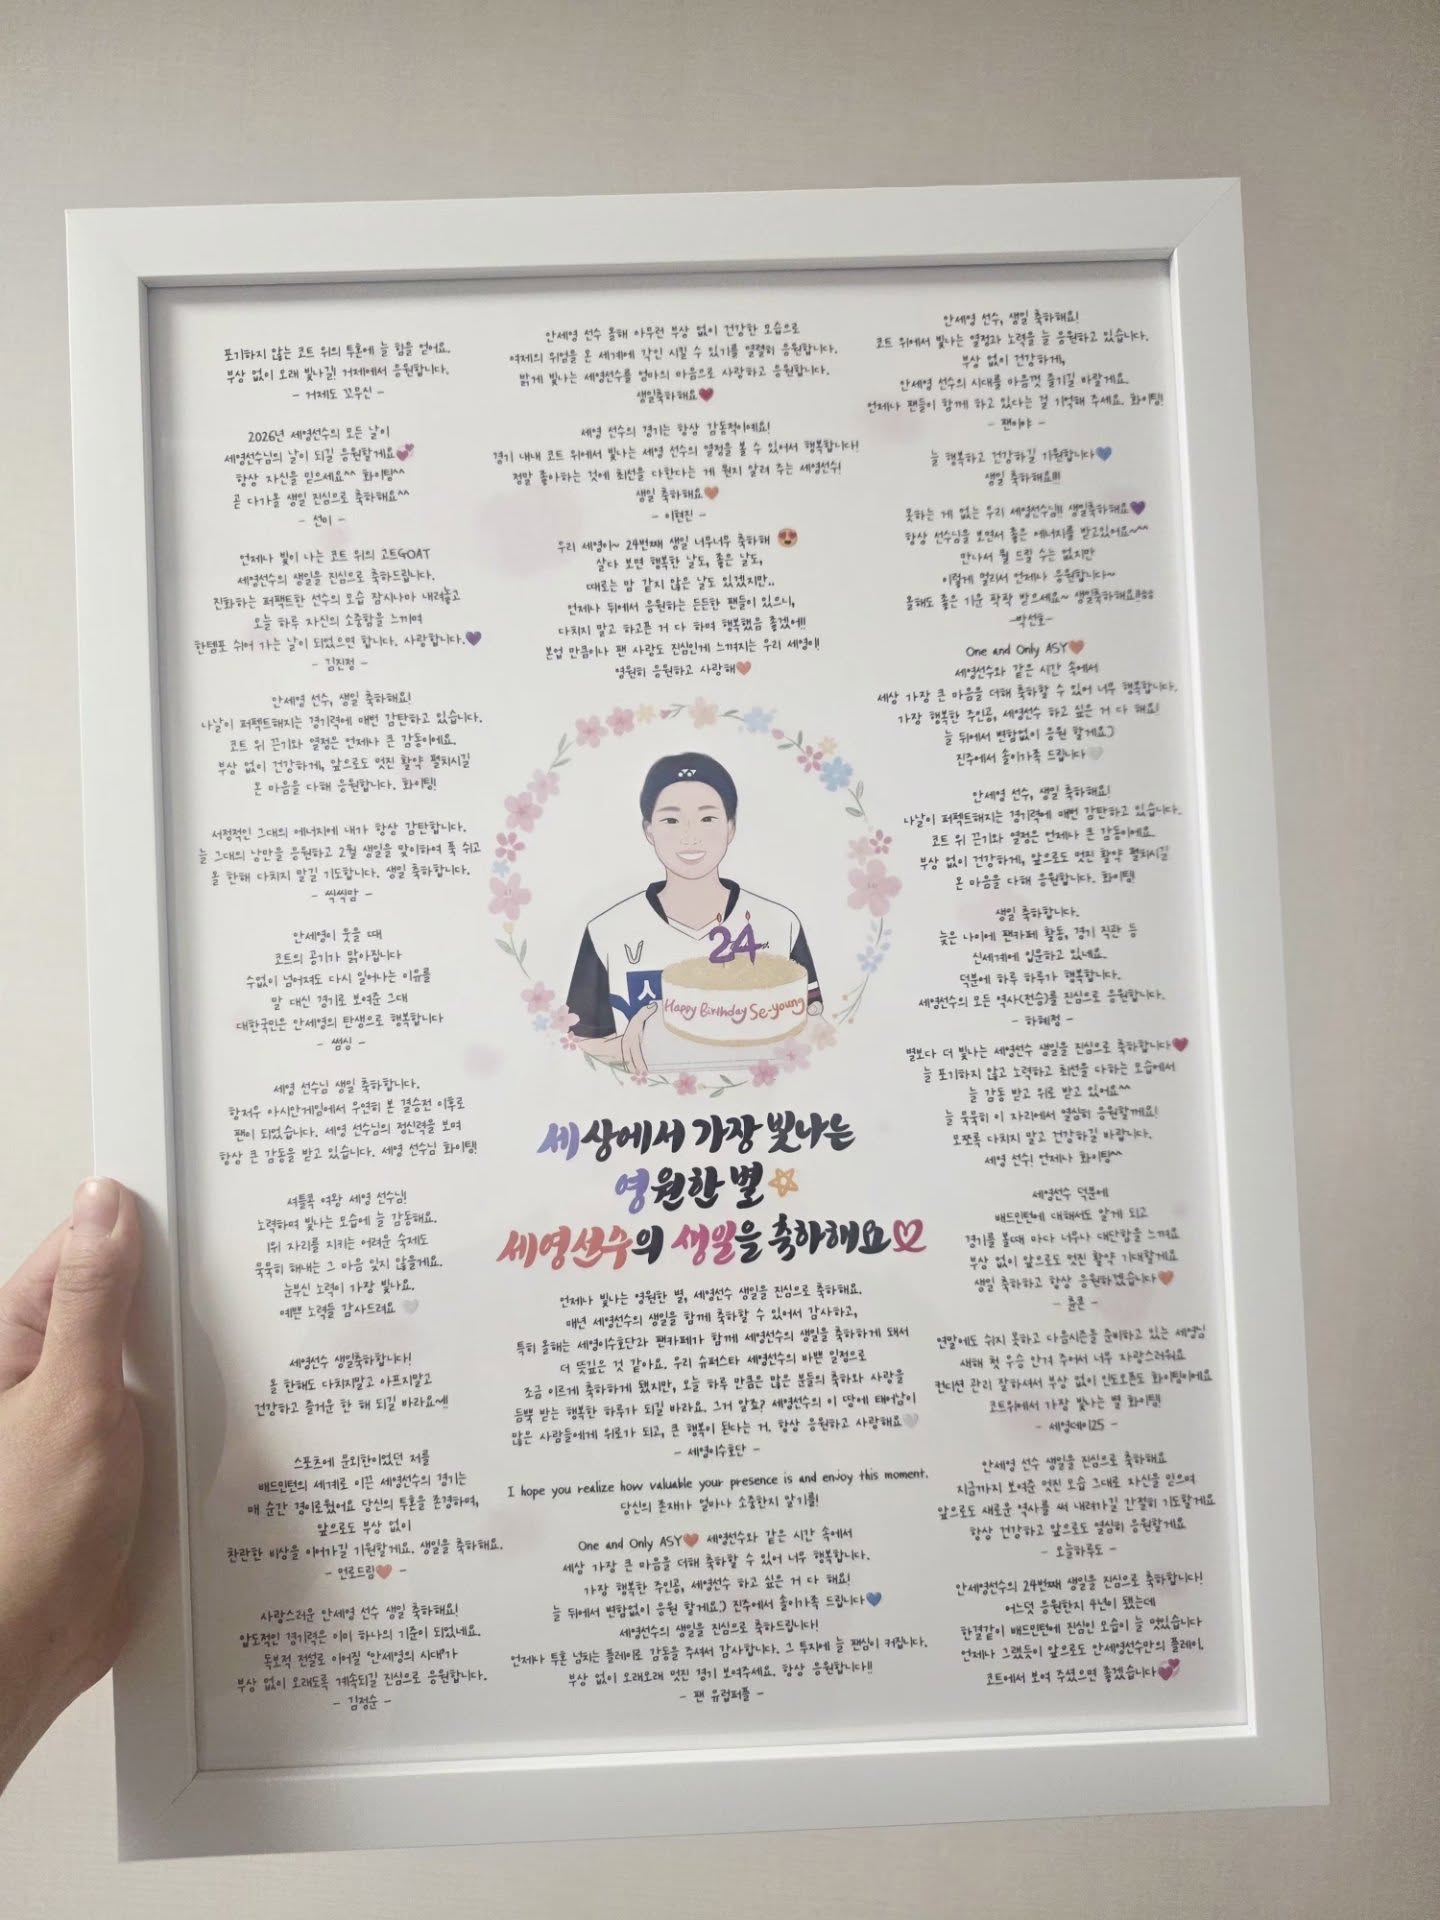 포기하지 않는 코트 위의 투혼에 늘 힘을 얻어요.
부상 없이 오래 빛나길! 거제에서 응원합니다.
- 거제도 꼬무신 -
2026년 세영선수의 모든 날이
세영선수님의 날이 되길 응원할게요💕
항상 자신을 믿으세요^^ 화이팅^^
곧 다가올 생일 진심으로 축하해요^^
- 선이 -
언제나 빛이 나는 코트 위의 고트GOAT
세영선수의 생일을 진심으로 축하드립니다.
진화하는 퍼팩트한 선수의 모습 잠시나마 내려놓고
오늘 하루 자신의 소중함을 느끼며
한템포 쉬어 가는 날이 되었으면 합니다. 사랑합니다.💜
- 김진정 -
안세영 선수, 생일 축하해요!
나날이 퍼펙트해지는 경기력에 매번 감탄하고 있습니다.
코트 위 끈기와 열정은 언제나 큰 감동이에요.
부상 없이 건강하게, 앞으로도 멋진 활약 펼치시길
온 마음을 다해 응원합니다. 화이팅!
서정적인 그대의 에너지에 내가 항상 감탄합니다.
늘 그대의 낭만을 응원하고 2월 생일을 맞이하여 푹 쉬고
올 한해 다치지 않길 기도합니다. 생일 축하합니다.
- 씩씩맘 -
안세영이 웃을 때
코트의 공기가 맑아집니다
수없이 넘어져도 다시 일어나는 이유를
말 대신 경기로 보여준 그대
대한국민은 안세영의 탄생으로 행복합니다
- 썸싱 -
세영 선수님 생일 축하합니다.
항저우 아시안게임에서 우연히 본 결승전 이후로
팬이 되었습니다. 세영 선수님의 정신력을 보며
항상 큰 감동을 받고 있습니다. 세영 선수님 화이팅!
셔틀콕 여왕 세영 선수님!
노력하며 빛나는 모습에 늘 감동해요.
1위 자리를 지키는 어려운 숙제도
묵묵히 해내는 그 마음 잊지 않을게요.
눈부신 노력이 가장 빛나요.
예쁜 노력들 감사드려요 🤍
세영선수 생일축하합니다!
올 한해도 다치지말고 아프지말고
건강하고 즐거운 한 해 되길 바라요~!!
스포츠에 문외한이었던 저를
배드민턴의 세계로 이끈 세영선수의 경기는
매 순간 경이로웠어요 당신의 투혼을 존경하며,
앞으로도 부상 없이
찬란한 비상을 이어가길 기원할게요. 생일을 축하해요.
- 먼로드림🧡 -
사랑스러운 안세영 선수 생일 축하해요!
압도적인 경기력은 이미 하나의 기준이 되었네요.
독보적 전설로 이어질 '안세영의 시대'가
부상 없이 오래도록 계속되길 진심으로 응원합니다.
- 김정순 -
안세영 선수 올해 아무런 부상 없이 건강한 모습으로
여제의 위엄을 온 세계에 각인 시킬 수 있기를 열렬히 응원합니다.
밝게 빛나는 세영선수를 엄마의 마음으로 사랑하고 응원합니다.
생일축하해요❤️
세영 선수의 경기는 항상 감동적이에요!
경기 내내 코트 위에서 빛나는 세영 선수의 열정을 볼 수 있어서 행복합니다!
정말 좋아하는 것에 최선을 다한다는 게 뭔지 알려 주는 세영선수!
생일 축하해요🧡
- 이현진 -
우리 세영이~ 24번째 생일 너무너무 축하해 😍
살다 보면 행복한 날도, 좋은 날도,
때로는 맘 같지 않은 날도 있겠지만..
언제나 뒤에서 응원하는 든든한 팬들이 있으니,
다치지 말고 하고픈 거 다 하며 행복했음 좋겠어!!
본업 만큼이나 팬 사랑도 진심인게 느껴지는 우리 세영이!
영원히 응원하고 사랑해🧡
24
Happy Birthday Se-young
세상에서 가장 빛나는
영원한 별
세영선수의 생일을 축하해요
언제나 빛나는 영원한 별, 세영선수 생일을 진심으로 축하해요.
매년 세영선수의 생일을 함께 축하할 수 있어서 감사하고,
특히 올해는 세영이수호단과 팬카페가 함께 세영선수의 생일을 축하하게 돼서
더 뜻깊은 것 같아요. 우리 슈퍼스타 세영선수의 바쁜 일정으로
조금 이르게 축하하게 됐지만, 오늘 하루 만큼은 많은 분들의 축하와 사랑을
듬뿍 받는 행복한 하루가 되길 바라요. 그거 알죠? 세영선수의 이 땅에 태어남이
많은 사람들에게 위로가 되고, 큰 행복이 된다는 거. 항상 응원하고 사랑해요🤍
- 세영이수호단 -
I hope you realize how valuable your presence is and enjoy this moment.
당신의 존재가 얼마나 소중한지 알기를!
One and Only ASY🧡 세영선수와 같은 시간 속에서
세상 가장 큰 마음을 더해 축하할 수 있어 너무 행복합니다.
가장 행복한 주인공, 세영선수 하고 싶은 거 다 해요!
늘 뒤에서 변함없이 응원 할게요:) 진주에서 솔이가족 드립니다💙
세영선수의 생일을 진심으로 축하드립니다!
언제나 투혼 넘치는 플레이로 감동을 주셔서 감사합니다. 그 투지에 늘 팬심이 커집니다.
부상 없이 오래오래 멋진 경기 보여주세요. 항상 응원합니다!!
- 팬 유럽퍼플 -
안세영 선수, 생일 축하해요!
코트 위에서 빛나는 열정과 노력을 늘 응원하고 있습니다.
부상 없이 건강하게,
안세영 선수의 시대를 마음껏 즐기길 바랄게요.
언제나 팬들이 함께 하고 있다는 걸 기억해 주세요. 화이팅!
- 팬이야 -
늘 행복하고 건강하길 기원합니다💙
생일 축하해요!!!
못하는 게 없는 우리 세영선수님!! 생일축하해요💜
항상 선수님을 보면서 좋은 에너지를 받고있어요~^^
만나서 뭘 드릴 수는 없지만
이렇게 멀리서 언제나 응원합니다~
올해도 좋은 기운 팍팍 받으세요~ 생일축하해요!!
-박선호-
One and Only ASY🧡
세영선수와 같은 시간 속에서
세상 가장 큰 마음을 더해 축하할 수 있어 너무 행복합니다.
가장 행복한 주인공, 세영선수 하고 싶은 거 다 해요!
늘 뒤에서 변함없이 응원 할게요:)
진주에서 솔이가족 드립니다🤍
안세영 선수, 생일 축하해요!
나날이 퍼펙트해지는 경기력에 매번 감탄하고 있습니다.
코트 위 끈기와 열정은 언제나 큰 감동이에요.
부상 없이 건강하게, 앞으로도 멋진 활약 펼치시길
온 마음을 다해 응원합니다. 화이팅!
생일 축하합니다.
늦은 나이에 팬카페 활동, 경기 직관 등
신세계에 입문하고 있네요.
덕분에 하루 하루가 행복합니다.
세영선수의 모든 역사(전승)를 진심으로 응원합니다.
- 하혜정 -
별보다 더 빛나는 세영선수 생일을 진심으로 축하합니다❤️
늘 포기하지 않고 노력하고 최선을 다하는 모습에서
늘 감동 받고 위로 받고 있어요^^
늘 묵묵히 이 자리에서 열심히 응원할께요!
모쪼록 다치지 말고 건강하길 바랍니다.
세영 선수! 언제나 화이팅^^
세영선수 덕분에
배드민턴에 대해서도 알게 되고
경기를 볼때 마다 너무나 대단함을 느껴요
부상 없이 앞으로도 멋진 활약 기대할게요
생일 축하하고 항상 응원하겠습니다🧡
- 훈존 -
연말에도 쉬지 못하고 다음시즌을 준비하고 있는 세영님
새해 첫 우승 안겨 주어서 너무 자랑스러워요
컨디션 관리 잘하셔서 부상 없이 인도오픈도 화이팅이에요
코트위에서 가장 빛나는 별 화이팅!
- 세영데이25 -
안세영 선수 생일을 진심으로 축하해요
지금까지 보여준 멋진 모습 그대로 자신을 믿으며
앞으로도 새로운 역사를 써 내려가길 간절히 기도할게요
항상 건강하고 앞으로도 열심히 응원할게요
- 오늘하루도 -
안세영선수의 24번째 생일을 진심으로 축하합니다!
어느덧 응원한지 4년이 됐는데
한결같이 배드민턴에 진심인 모습이 늘 멋있습니다
언제나 그랬듯이 앞으로도 안세영선수만의 플레이,
코트에서 보여 주셨으면 좋겠습니다💕